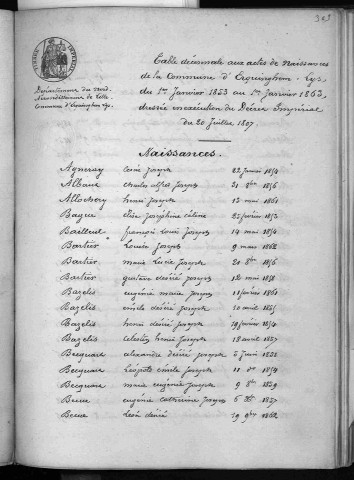 305
TIMBRE IMPÉRIAL
Département du Nord.
Arrondissement de Lille
Commune d'Erquinghem Lys.
Table décennale aux actes de Naissances
de la Commune d'Erquinghem-Lys,
du 1er Janvier 1853 au 1er Janvier 1863,
dressée en exécution du Décret Impérial
du 20 Juillet 1807.
Naissances.
Agneray Joseph 1854
Albaut charles alfred joseph 31 8bre 1856
Allochery henri joseph 13 mai 1861
Bayeu elise joséphine céline 25 février 1853
Bailleul françois louis joseph 14 mai 1854
Bartier Louise joseph 9 mars 1862
Bartier marie Lucie joseph 20 8bre 1856
Bartier gustave désiré joseph 12 mai 1858
Bazelis eugénie marie joseph 11 février 1861
Bazelis emile désiré joseph 10 août 1855
Bazelis henri désiré joseph 19 janvier 1854
Bazelis celestin henri joseph 18 août 1857
Becquart alexandre désiré joseph 5 Juin 1858
Becquart Léopold emile joseph 11 1854
Becquart marie eugénie joseph 9 8bre 1859
Becue eugénie catherine joseph 6 1857
Becue Léon désiré 29 9bre 1862